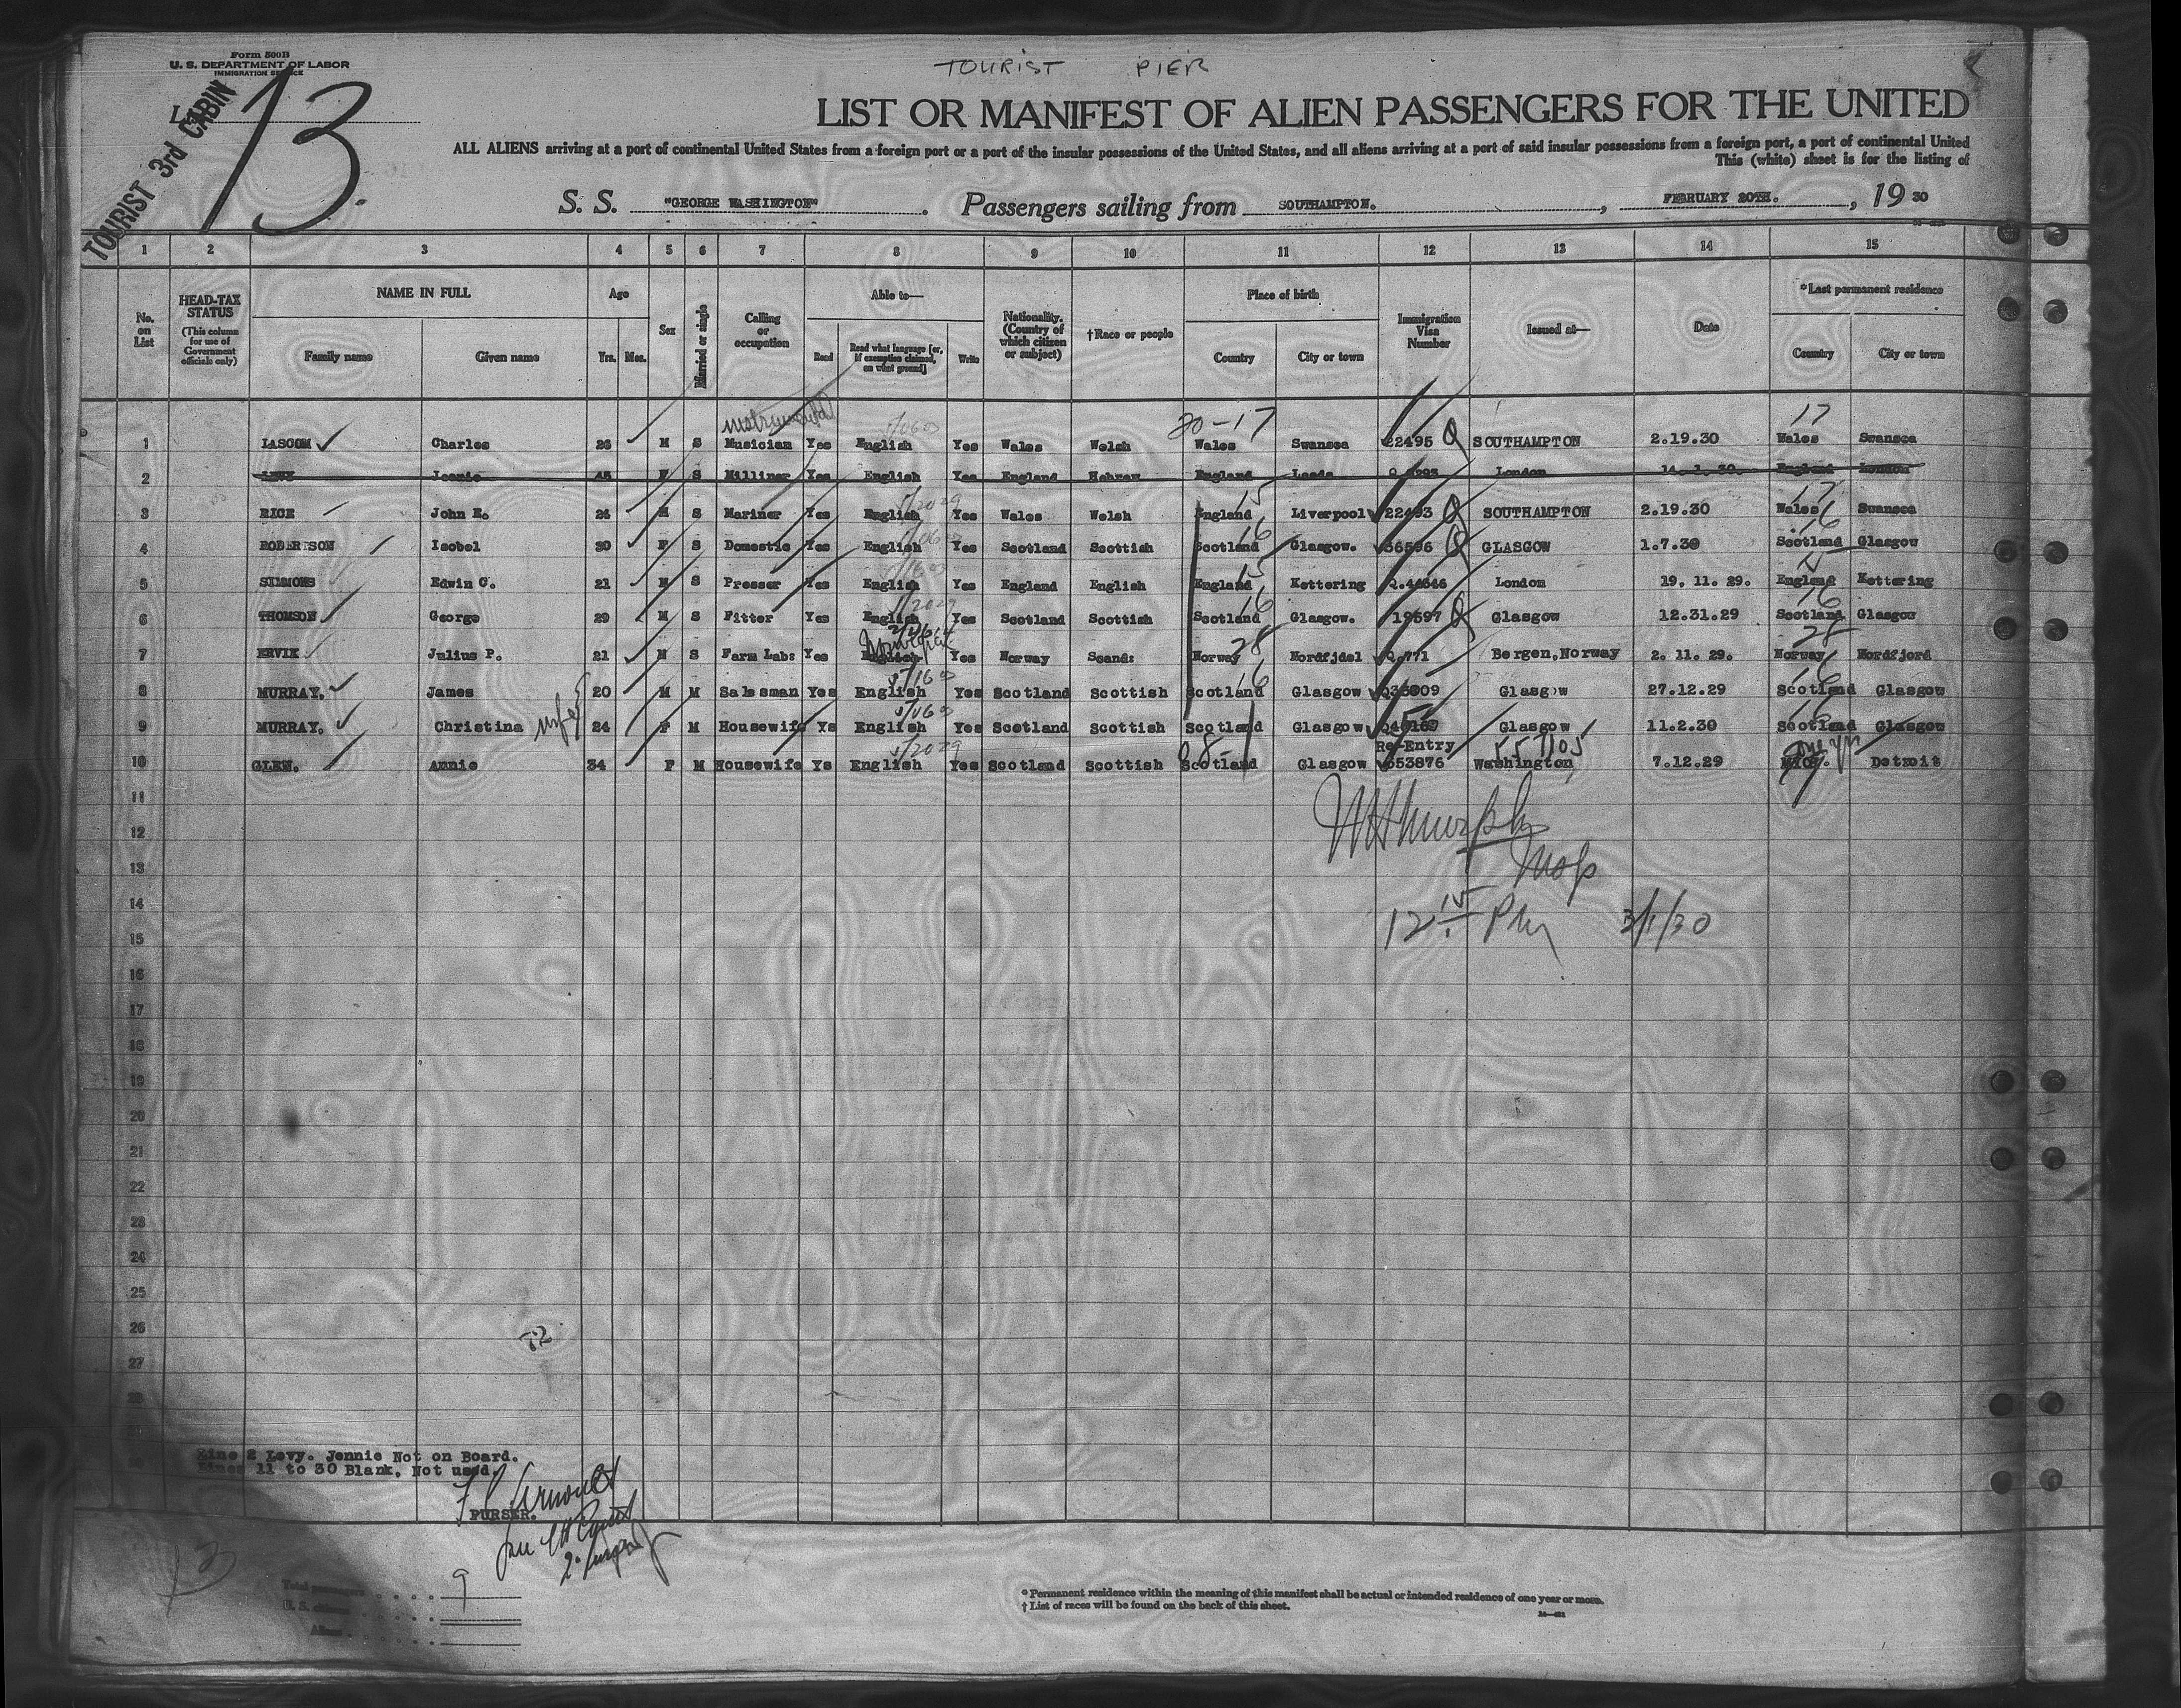 Form 500B
U. S. DEPARTMENT OF LABOR
IMMIGRATION SERVICE
TOURIST PIER
TOURIST 3rd CABIN
13
LIST OR MANIFEST OF ALIEN PASSENGERS FOR THE UNITED
ALL ALIENS arriving at a port of continental United States from a foreign port or a port of the insular possessions of the United States, and all aliens arriving at a port of said insular possessions from a foreign port, a port of continental United
This (white) sheet is for the listing of
S. S. "GEORGE WASHINGTON". Passengers sailing from SOUTHAMPTON. , FEBRUARY 20TH. , 19 30
1 2 3 4 5 6 7 8 9 10 11 12 13 14 15
No. on List
HEAD-TAX STATUS (This column for use of Government officials only)
NAME IN FULL
Family name Given name
Age
Yrs. Mos.
Sex
Married or single
Calling or occupation
Able to—
Read Read what language [or, if exemption claimed, on what ground] Write
Nationality. (Country of which citizen or subject)
†Race or people
Place of birth
Country City or town
Immigration Visa Number
Issued at—
Date
*Last permanent residence
Country City or town
20-17 17
1 Charles 26 M S Musician Yes English Yes Wales Welsh Wales Swansea 22495 Q SOUTHAMPTON 2.19.30 Wales Swansea
2 LEVY Jennie 45 F S Milliner Yes English Yes England Hebrew England Leeds London 14.1.30. England London
3 RICE John E. M S Mariner Yes English Yes Wales Welsh England Liverpool 22493 Q SOUTHAMPTON 2.19.30 Wales Swansea
4 ROBERTSON Isobel 30 F S Domestic Yes English Yes Scotland Scottish Scotland Glasgow. 36596 Q GLASGOW 1.7.30 Scotland Glasgow
5 SIMMONS Edwin C. 21 M S Presser Yes English Yes England English England Kettering London 19. 11. 29. England Kettering
6 THOMSON George 29 M S Fitter Yes English Yes Scotland Scottish Scotland Glasgow. 19597 Q Glasgow 12.31.29 Scotland Glasgow
7 ERVIK Julius P. 21 M S Farm Lab: Yes English Yes Norway Scand: Norway 28 Nordfjdel Q.771 Bergen.Norway 2. 11. 29. Norway 28 Nordfjord
8 MURRAY. James 20 M M Salesman Yes English Yes Scotland Scottish Scotland Glasgow Glasgow 27.12.29 Scotland Glasgow
9 MURRAY. Christina wife 24 F M Housewife Ys English Yes Scotland Scottish Scotland Glasgow Glasgow 11.2.30 Scotland Glasgow
Re-Entry 557105
10 GLEN. Annie 34 F M Housewife Ys English Yes Scotland Scottish Scotland Glasgow 653876 Washington 7.12.29 MICH. Detroit
11
12
13
14
12 15 PM 3/1/30
15
16
17
18
19
20
21
22
23
24
25
26
72
27
28
Line 2 Levy. Jennie Not on Board.
Lines 11 to 30 Blank. Not used.
PURSER.
13
Total passengers 9
U. S. citizens
Aliens
* Permanent residence within the meaning of this manifest shall be actual or intended residence of one year or more.
† List of races will be found on the back of this sheet.